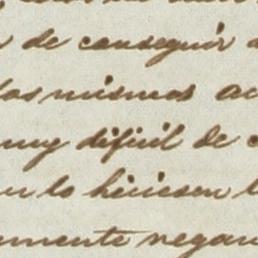 de conseguir
los mismos ac
muy dificil de
lo hiciesen l
mente negar